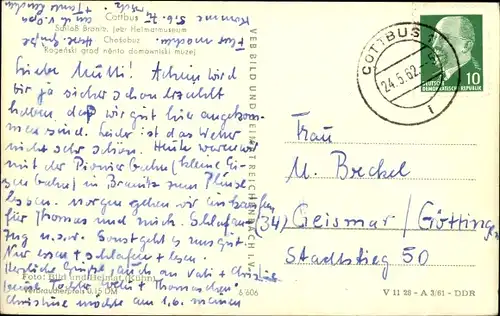 Cottbus
Schloß Branitz, jetzt Heimatmuseum
Chośebuz
Rogeński grod něnto domowniski muzej
Liebe Mutti! Achim wird
Dir ja sicher schon erzählt
haben, daß wir gut hier angekom-
men sind. Leider ist das Wetter
nicht sehr schön. Heute waren wir
mit der Pionierbahn (kleine Ei-
senbahn) in Branitz zum
Morgen gehen wir einkaufen
für Thomas und mich. Schlafan-
zug u.s.w. Sonst geht es uns gut.
Nur essen + schlafen + lesen.
Herzliche Grüße, auch an Vati +
Deine Tochter + Thomaschen
Christine möchte am 1.6. meinen
VEB BILD UND HEIMAT REICHENBACH I. V.
Foto: Bild und Heimat
Verbraucherpreis 0,15 DM
6/606
COTTBUS
24.5.62
10
DEUTSCHE
DEMOKRATISCHE REPUBLIK
Frau
M. Breckel
(34) Geismar/Götting
Stadtstieg 50
V 11 28 - A 3/61 - DDR